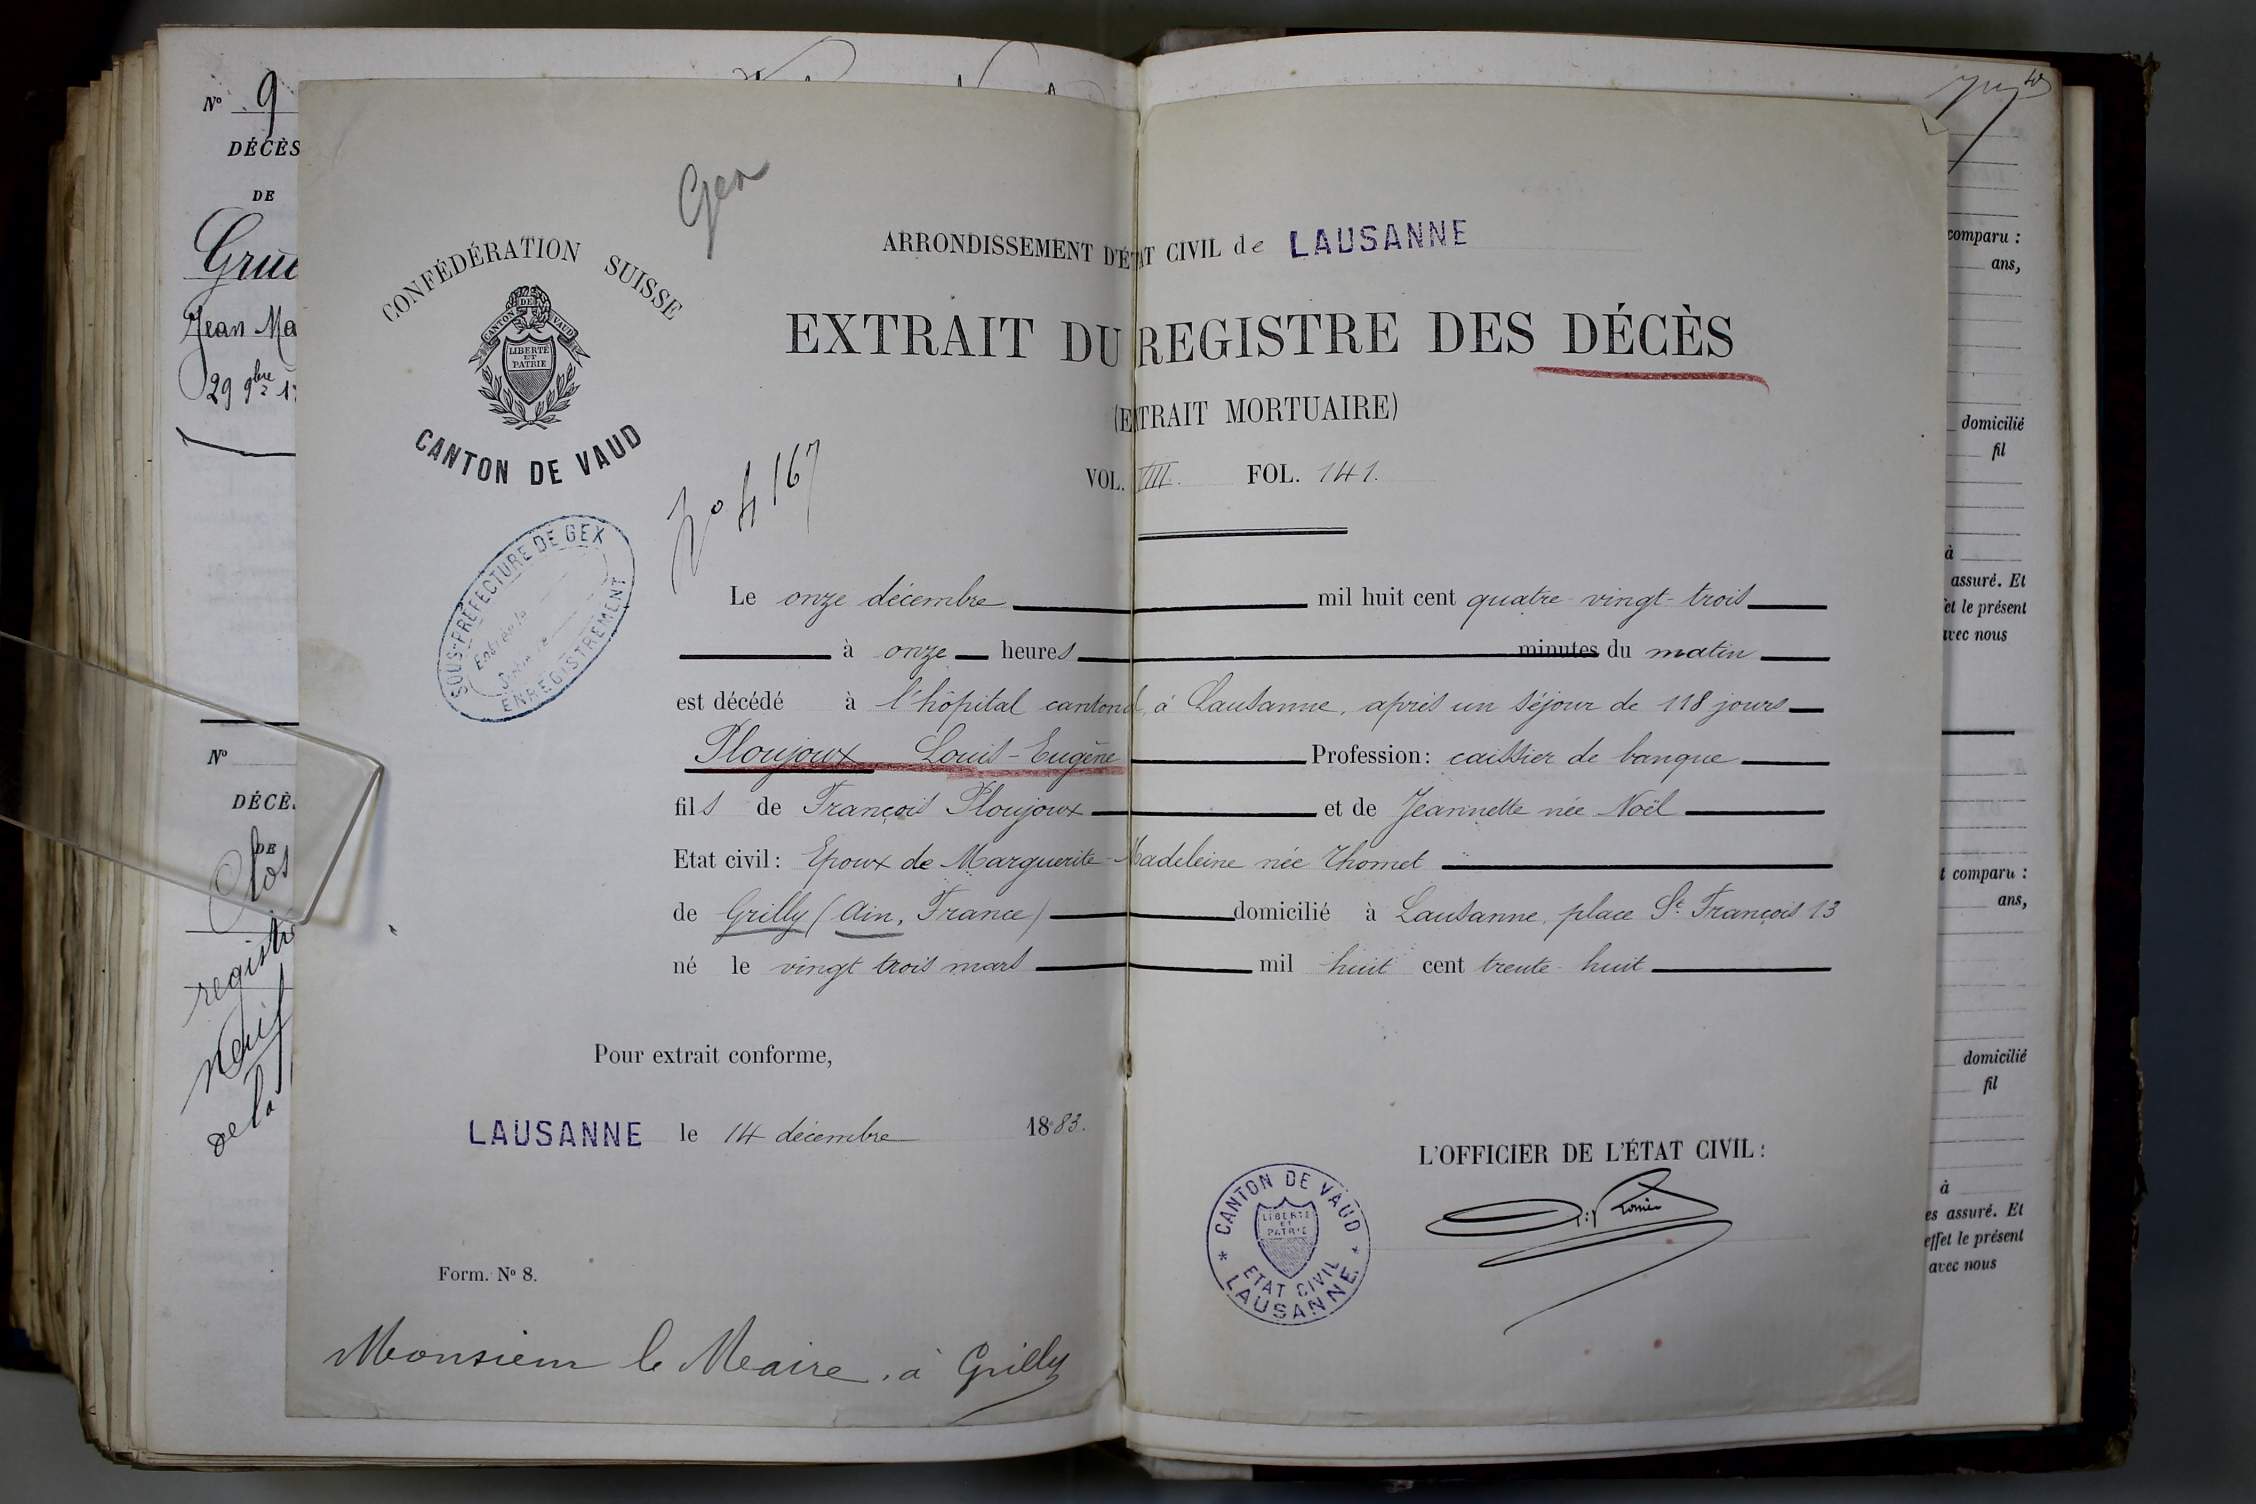 Nº 9
DÉCÈS
DE
Jean Ma
29 9bre 1
Nº
DÉCÈ
DE
Clos
registr
de la
Gex
CONFÉDÉRATION SUISSE
CANTON DE VAUD
LIBERTÉ
ET
PATRIE
CANTON DE VAUD
ARRONDISSEMENT D'ÉTAT CIVIL de LAUSANNE
EXTRAIT DU REGISTRE DES DÉCÈS
(EXTRAIT MORTUAIRE)
VOL. VIII. FOL. 141.
Nº 4167
SOUS-PRÉFECTURE DE GEX
ENREGISTREMENT
Le onze décembre mil huit cent quatre-vingt-trois
à onze heures minutes du matin
est décédé à l'hôpital cantonal, à Lausanne, après un séjour de 118 jours
Ploujoux Louis-Eugène Profession: caissier de banque
fils de François Ploujoux et de Jeannette née Noël
Etat civil: Epoux de Marguerite-Madeleine née Thomet
de Grilly (Ain, France) domicilié à Lausanne, place St. François 13
né le vingt trois mars mil huit cent trente-huit
Pour extrait conforme,
LAUSANNE le 14 décembre 1883.
L'OFFICIER DE L'ÉTAT CIVIL:
CANTON DE VAUD
LIBERTÉ
ET
PATRIE
ETAT CIVIL
LAUSANNE
Form. Nº 8.
Monsieur le Maire, à Grilly
comparu :
ans,
domicilié
fil
à
assuré. Et
et le présent
avec nous
t comparu :
ans,
domicilié
fil
à
es assuré. Et
effet le présent
avec nous